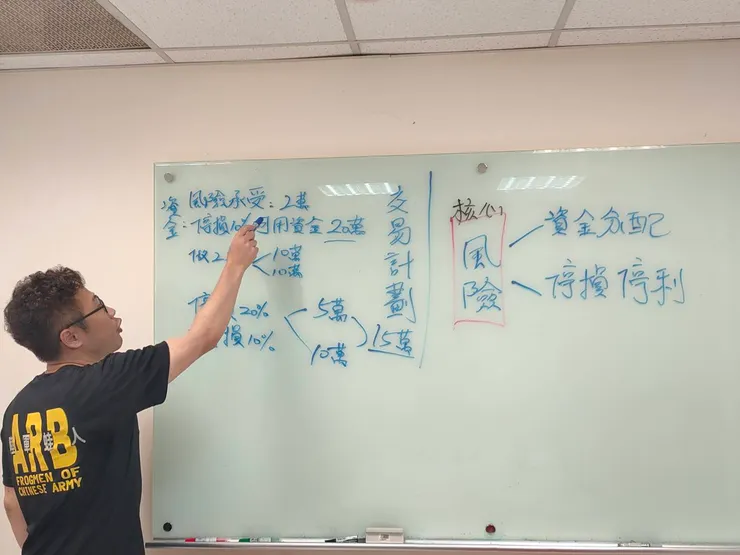 資金:
風險承受:2萬
停損10% 可用資金 20萬
做2
10萬
10萬
20%
損10%
5萬
10萬
15萬
交易計劃
核心
風險
資金分配
停損 停利
ARB
FROGMEN OF
CHINESE ARMY